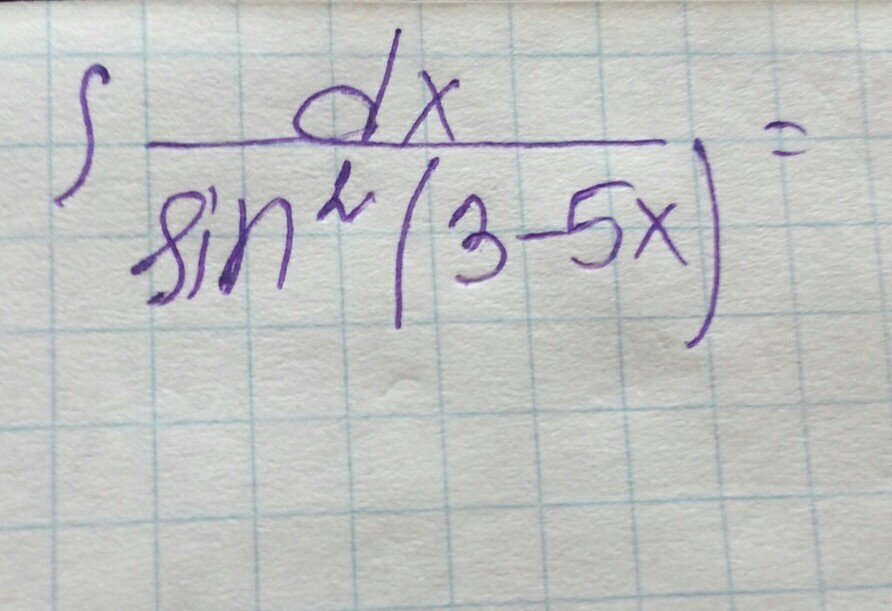 ∫ dx / sin² (3-5x) =